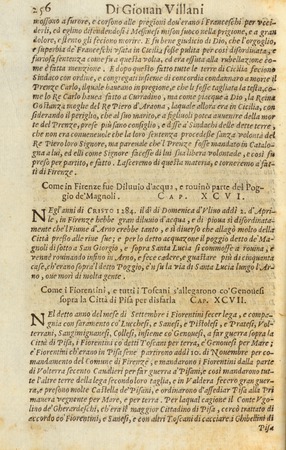 256 Di Giouan Villani
wassono a furore, e corsono alle pregioni dou'erano i Franceschi per vcci-
derli, ed eglino difendendosi i Messinesi mison fuoco nella pregione, e a gran
dolore, e stento gli fecino morire. E fu bene giudicio di Dio, che l'orgoglio,
e superbia de' Franceschi vsata in Cicilia fosse pulita per così disordinata, e
furiosa sententia come fu a questa volta, ed era essuta alla rubellazione co-
me è fatta menzione. E dopo questo fatto tutte le terre di Cicilia fecciono
Sindaco con ordine, e congregati insieme di concordia condannaro a morte il
Prenze Carlo, ilquale haueano in pregione, e che li fosse tagliata la testa, co-
me lo Re Carlo hauea fatto a Curradino, ma come piacque a Dio, la Reina
Gostanza moglie del Re Piero d'Araona, laquale allora era in Cicilia, con
siderando il periglio, che al suo marito, e a figliuoli potea auuenire della mor-
te del Prenze, prese più sano consiglio, e disse a Sindachi delle dette terre,
che non era conueneuole che la loro sententia procedesse sanza volontà del
Re Piero loro Signore, ma pareuale che'l Prenze fosse mandato in Catalo-
gna a lui, ed elli come Signore facesse di lui sua libera volontade, e così fu
preso per partito, e fatto. Lasceremo di questa materia, e torneremo a fat-
ti di Firenze.
Come in Firenze fue Diluuio d'acqua, e rouinò parte del Pog-
gio de' Magnoli. CAP. XCVI.
NEgl'anni di CRISTO 1284. il dì di Domenica d'Vliuo addì 2. d'Apri-
le, in Fiorenza hebbe gran diluuio d'acque, e di pioua sì disordinata-
mente che'l Fiume d'Arno crebbe tanto, e sì diuerso che allagò molto della
Città presso alle riue sue; e per lo detto acquazione il poggio detto de' Ma-
gnoli di sotto a San Giorgio, e sopra Santa Lucia si commosse a rouina, e
venne rouinando infino in Arno, e fece cadere, e guastare più di cinquanta
case, ch'erano sopra'l detto Poggio, e'n su la via di Santa Lucia lungo l'Ar-
no, oue morì molta gente.
Come i Fiorentini, e tutti i Toscani s'allegatono co'Genouesi
sopra la Città di Pisa per disfarla. CAP. XCVII.
NEl detto anno del mese di Settembre i Fiorentini fecer lega, e compa-
gnia con saramento co'Lucchesi, e Sanesi, e Pistolesi, e Pratesi, Vol-
terrani, Sangimignanesi, Collesi, insieme co'Genouesi, a far guerra sopra la
Città di Pisa, i Fiorentini co'detti Toscani per terra, e'Genouesi per Mare;
e'Fiorentini ch'erano in Pisa sene partirono addì 10. di Nouembre per co-
mandamento del Commune di Firenze; e mandaro i Fiorentini dalla parte
di Volterra secento Caualieri per far guerra a'Pisani, e così mandarono tut-
te l'altre terre della lega secondo loro taglia, e in Valdera fecero gran guer-
ra, e presono molte Castella de'Pisani, e ordinarono d'assediar Pisa alla Pri
mauera vegnente per Mare, e per terra. Per laqual cagione il Conte Vgo-
lino de' Gherardeschi, ch'era il maggior Cittadino di Pisa, cercò trattato di
accordo co'Fiorentini, e Sanesi, e con altri Toscani di cacciare i Ghibellini di
Pisa